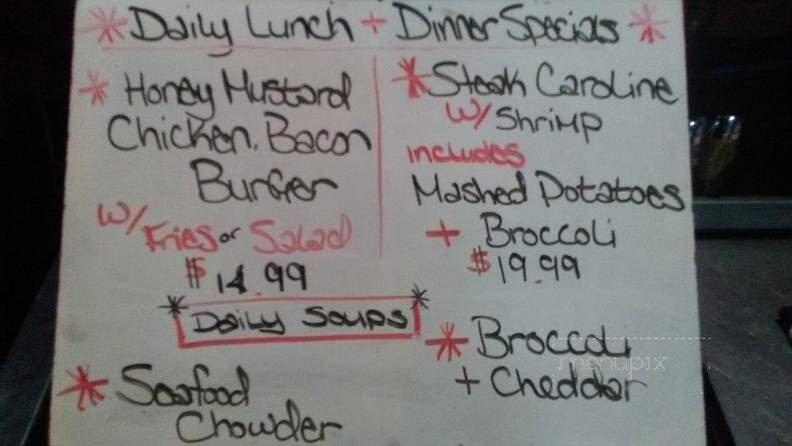 * Daily Lunch + Dinner Specials *
* Honey Mustard
Chicken, Bacon
Burger
w/ Fries or Salad
$ 14.99
* Steak Caroline
w/ Shrimp
includes
Mashed Potatoes
+ Broccoli
$ 19.99
* Daily Soups *
* Seafood
Chowder
* Broccoli
+ Cheddar
menupix